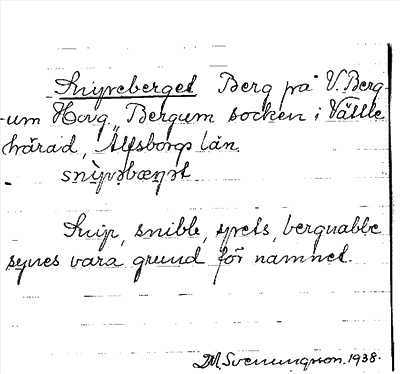 Snipeberget Berg på V. Berg-
um Hovg. Bergum socken i Vättle
härad, Älfsborgs län.
Snip, snibb, spets, bergnabbe
synes vara grund för namnet.
D.M. Svenungsson. 1938.